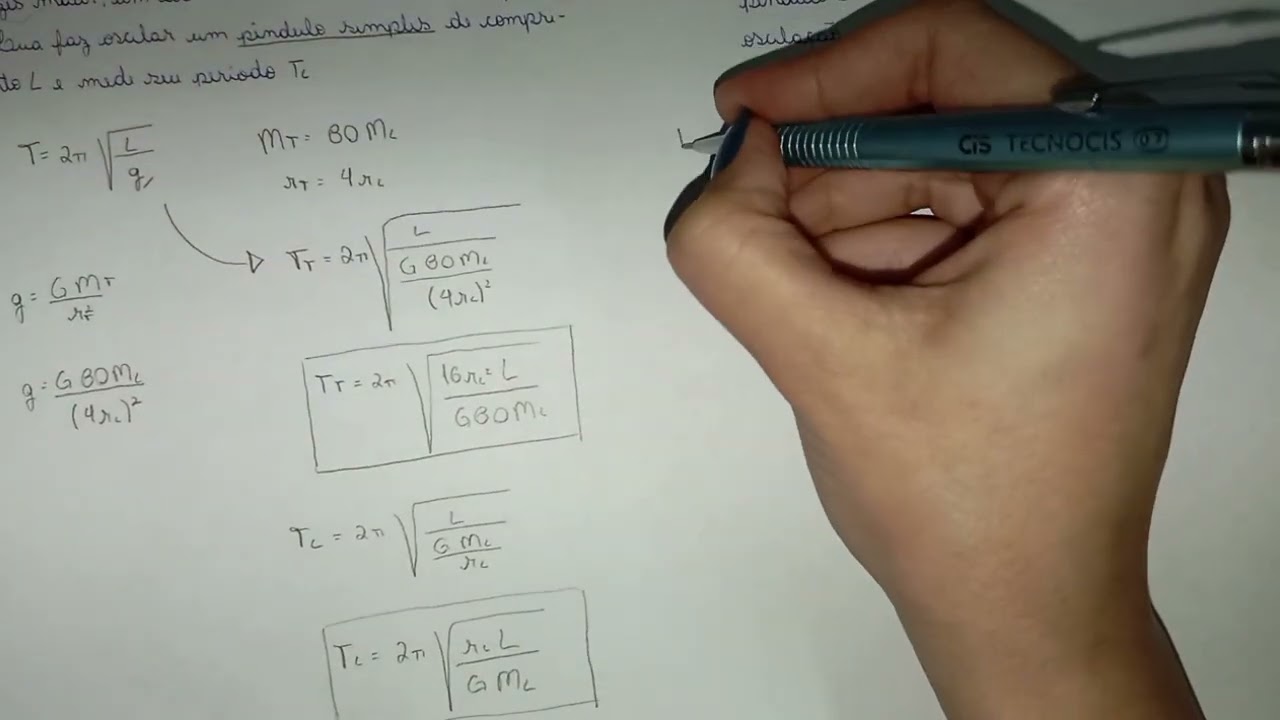 Lua faz oscilar um pêndulo simples de compri-
to L e mede seu período T_L
oscilação
T = 2π √(L / g)
M_T = 80 M_L
r_T = 4 r_L
T_T = 2π √(L / (G 80 M_L / (4 r_L)²))
g = G M_T / r_T²
g = G 80 M_L / (4 r_L)²
T_T = 2π √(16 r_L² L / G 80 M_L)
T_L = 2π √(L / (G M_L / r_L))
T_L = 2π √(r_L L / G M_L)
L
CiS TECNOCIS 0.7